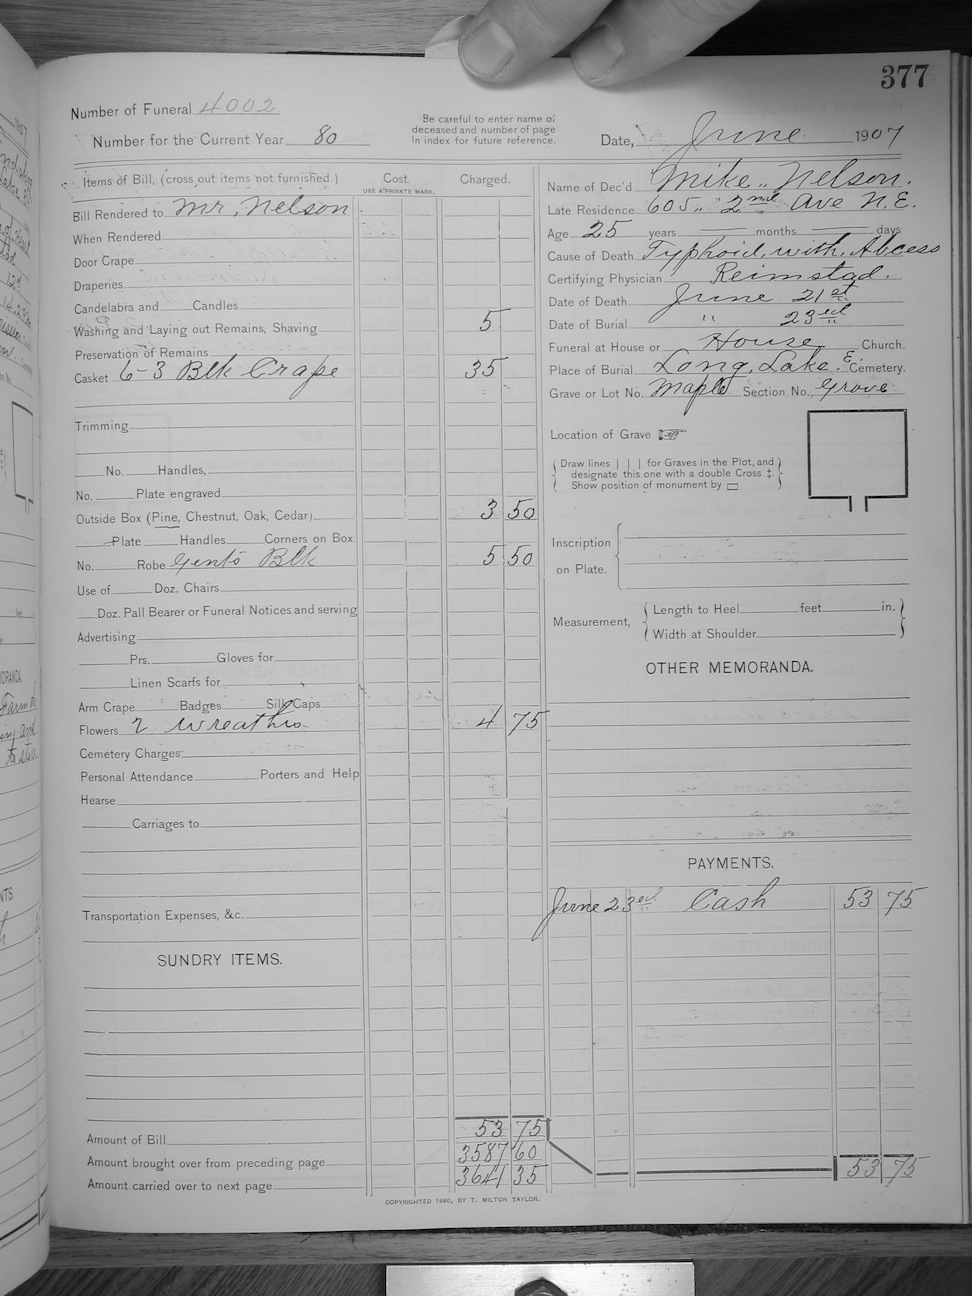 377
Number of Funeral 4002
Number for the Current Year 80
Be careful to enter name of
deceased and number of page
in index for future reference.
Date, June 1907
Items of Bill, (cross out items not furnished.)
Cost.
USE A PRIVATE MARK.
Charged.
Bill Rendered to Mr, Nelson
When Rendered
Door Crape
Draperies
Candelabra and Candles
Washing and Laying out Remains, Shaving 5
Preservation of Remains
Casket 6-3 Blk Crape 35
Trimming
No. Handles,
No. Plate engraved
Outside Box (Pine, Chestnut, Oak, Cedar) 3 50
Plate Handles Corners on Box.
No. Robe Gents Blk 5 50
Use of Doz. Chairs
Doz. Pall Bearer or Funeral Notices and serving
Advertising
Prs. Gloves for
Linen Scarfs for
Arm Crape Badges Silk Caps
Flowers 2 wreaths 4 75
Cemetery Charges
Personal Attendance Porters and Help
Hearse
Carriages to
Transportation Expenses, &c.
SUNDRY ITEMS.
Amount of Bill 53 75
Amount brought over from preceding page 3587 60
Amount carried over to next page 3641 35
Name of Dec'd Mike Nelson.
Late Residence 605 2nd Ave N.E.
Age 25 years months days
Cause of Death Typhoid, with, Abcess
Certifying Physician Reimstad.
Date of Death June 21st
Date of Burial " 23rd
Funeral at House or House Church.
Place of Burial Long, Lake. E. Cemetery.
Grave or Lot No. Maple Section No. Grove
Location of Grave
Draw lines | | | for Graves in the Plot, and
designate this one with a double Cross ‡.
Show position of monument by
Inscription
on Plate.
Measurement,
Length to Heel feet in.
Width at Shoulder
OTHER MEMORANDA.
PAYMENTS.
June 23rd Cash 53 75
53 75
COPYRIGHTED 1880, BY T. MILTON TAYLOR.